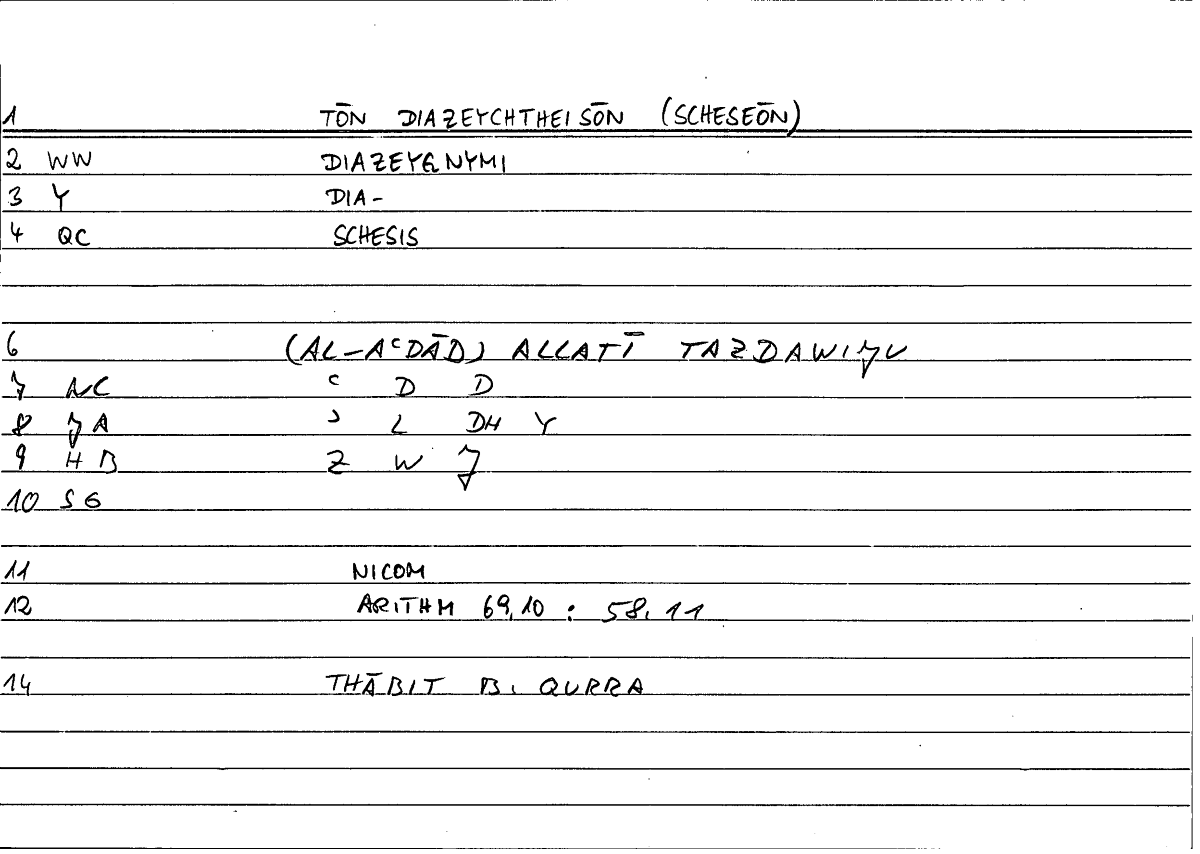 1 TŌN DIAZEYCHTHEISŌN (SCHESEŌN)
2 WW DIAZEYGNYMI
3 Y DIA-
4 QC SCHESIS
6 (AL-AʿDĀD) ALLATĪ TAZDAWIJU
7 NC ʿ D D
8 JA ʾ L DH Y
9 HB Z W J
10 SG
11 NICOM
12 ARITHM 69,10 : 58,11
14 THĀBIT B. QURRA